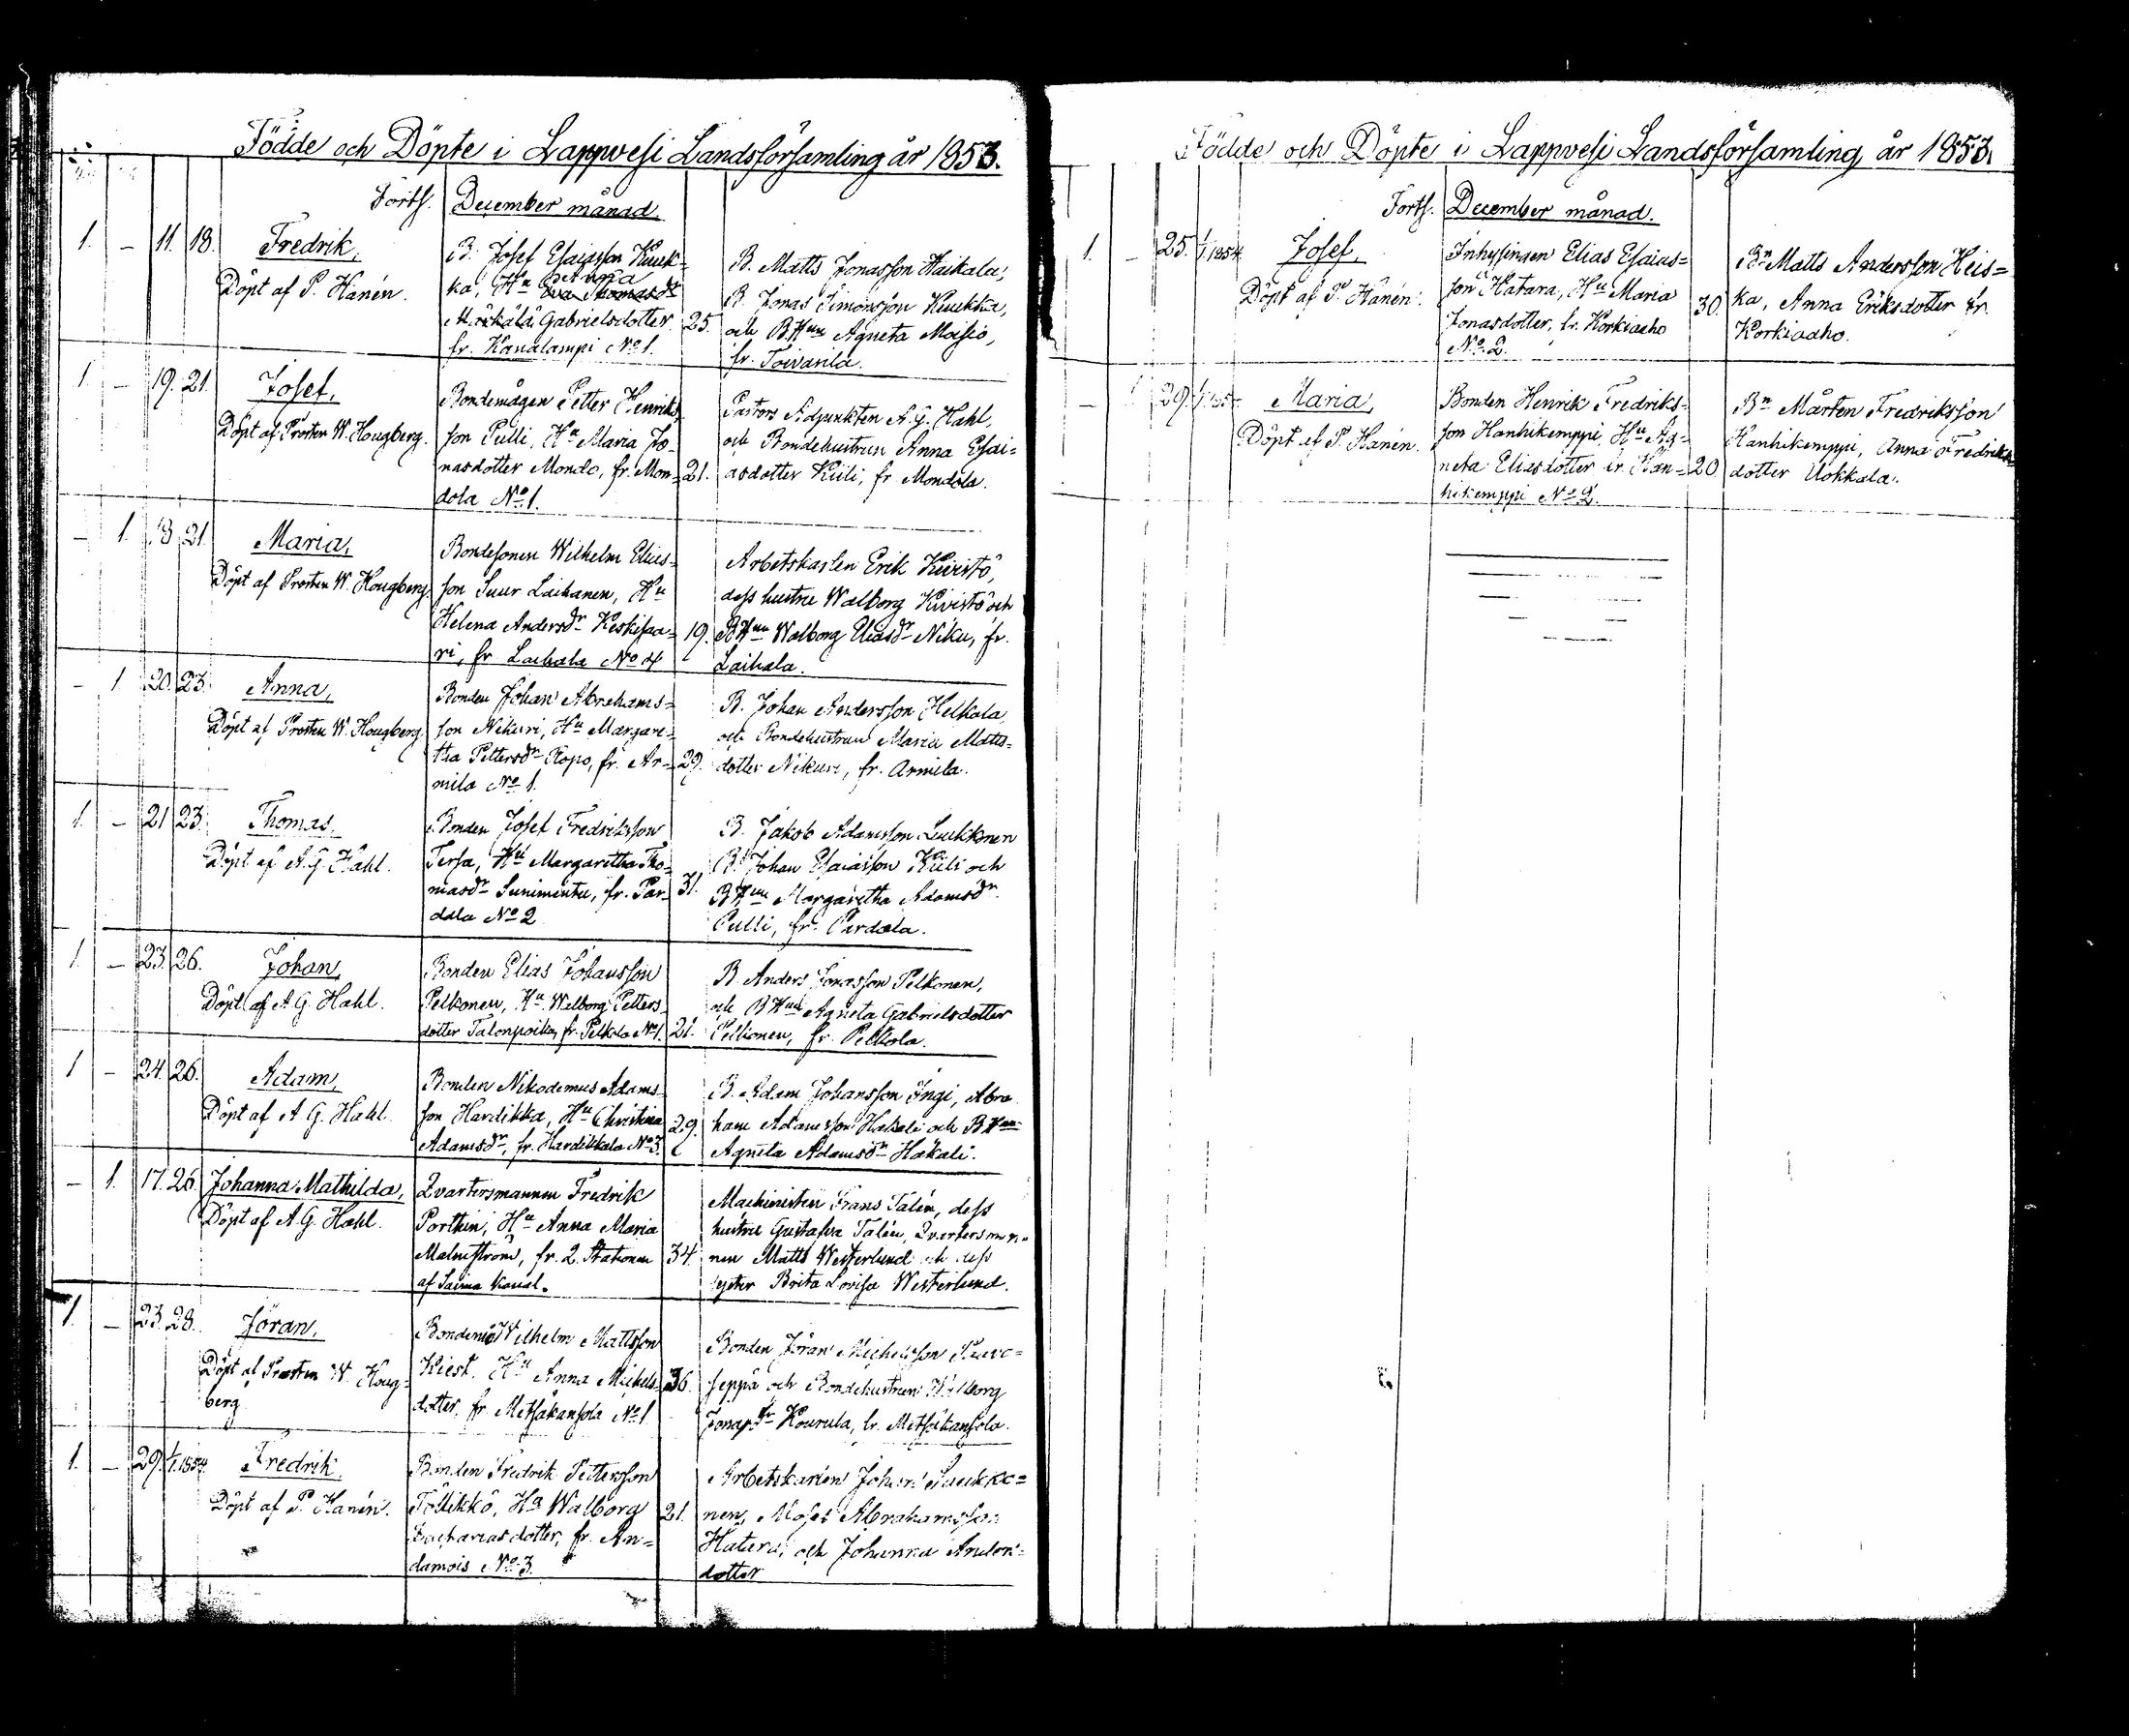 Födde och Döpte i Lappvesi Landsförsamling år 1853.
Forts. December månad.
1. – 11. 18. Fredrik,
Döpt af P. Hanén.
B. Josef Esaiasson Kuuk-
ka, Hu Eva Thomasdr
Gabrielsdotter
fr. Kanalampi No 1.
25.
B. Matts Jonasson Haikala,
B. Jonas Simonsson Kuukka,
och BHun Agneta Maisio,
fr. Toivarila.
1. – 19. 21. Josef,
Döpt af Prosten W. Hougberg.
Bondemågen Petter Henriks-
son Pulli, Hu Maria Jo-
nasdotter Mondo, fr. Mon-
dola No 1.
21.
Pastors Adjunkten A. G. Hahl,
och Bondehustrun Anna Esai-
asdotter Kiili, fr. Mondola.
– 1. 18 21. Maria,
Döpt af Prosten W. Hougberg.
Bondesonen Wilhelm Elias-
son Suur Laihanen, Hu
Helena Andersdr Keskisaa-
ri, fr Laihala No 4
19.
Arbetskarlen Erik Kivistö,
dess hustru Walborg Kivistö och
BHun Walborg Eliasdr Niku, fr.
Laihala.
– 1 20. 23. Anna,
Döpt af Prosten W. Hougberg.
Bonden Johan Abrahams-
son Nikuri, Hu Margare-
tha Pettersdr Ropo, fr. Ar-
mila No 1.
29.
B. Johan Andersson Helkala,
och Bondehustrun Maria Matts-
dotter Nikuri, fr. Armila.
1. – 21 23. Thomas,
Döpt af A. G. Hahl.
Bonden Josef Fredriksson
Tersa, Hu Margaretha Tho-
masdr Sunimentu, fr. Par-
dala No 2
31.
B. Jakob Adamsson Luukkonen
B. Johan Esaiasson Kiili och
BHun Margaretha Adamsdr
Pulli, fr. Pardala.
1. – 23. 26. Johan,
Döpt af A. G. Hahl.
Bonden Elias Johansson
Pelkonen, Hu Walborg Petters-
dotter Talonpoika, fr. Pelkola No 1.
21.
B Anders Jonasson Pelkonen,
och BHun Agneta Gabrielsdotter
Pelkonen, fr. Pelkola.
1 – 24. 26. Adam,
Döpt af A. G. Hahl.
Bonden Nikodemus Adams-
son Hardikka, Hu Christina
Adamsdr, fr. Hardikkala No 3.
29.
B. Adam Johansson Ingi, Abra
ham Adamsson Hakali och BHun
Agneta Adamsdr Hakali.
– 1. 17. 26. Johanna Mathilda,
Döpt af A. G. Hahl.
Qvartersmannen Fredrik
Porthin, Hu Anna Maria
Malmström, fr. 2. Stationen
af Saima Kanal.
34.
Machinisten Frans Talén, dess
hustru Gustafva Talén, Qvartersman-
nen Matts Westerlund och dess
syster Brita Lovisa Westerlund.
1. – 23. 28. Jöran,
Döpt af Prosten W. Houg-
berg
Wilhelm Mattsson
Kiest. Hu Anna Mickels-
dotter, fr Metsäkansola No 1
36.
Bonden Jöran Michelsson Rauta-
seppä och Bondehustrun Walborg
Jonasdr Kourula, fr. Metsäkansola.
1. – 29. 1/1.1854. Fredrik,
Döpt af P. Hanén.
Bonden Fredrik Pettersson
Töllikkö, Hu Walborg
Zachariasdotter, fr. An-
damois No 3.
21.
Arbetskarlen Johan Luukko-
nen, Moses Abrahamsson
Hatara, och Johanna Anders-
dotter
Födde och Döpte i Lappvesi Landsförsamling år 1853.
Forts. December månad.
1. – 25. 1/1.1854. Josef,
Döpt af P. Hanén.
Inhysingen Elias Esaias-
son Hatara, Hu Maria
Jonasdotter, fr. Korkiaaho
No 2.
30.
Bn Matts Andersson Heis-
ka, Anna Eriksdotter fr.
Korkiaaho.
– 1 29. Maria,
Döpt af P. Hanén.
Bonden Henrik Fredriks-
son Hanhikemppi, Hu Ag-
neta Eliasdotter fr. Han-
hikemppi No 2.
20.
Bn Mårten Fredriksson
Hanhikemppi, Anna Fredriks
dotter Uokkala.